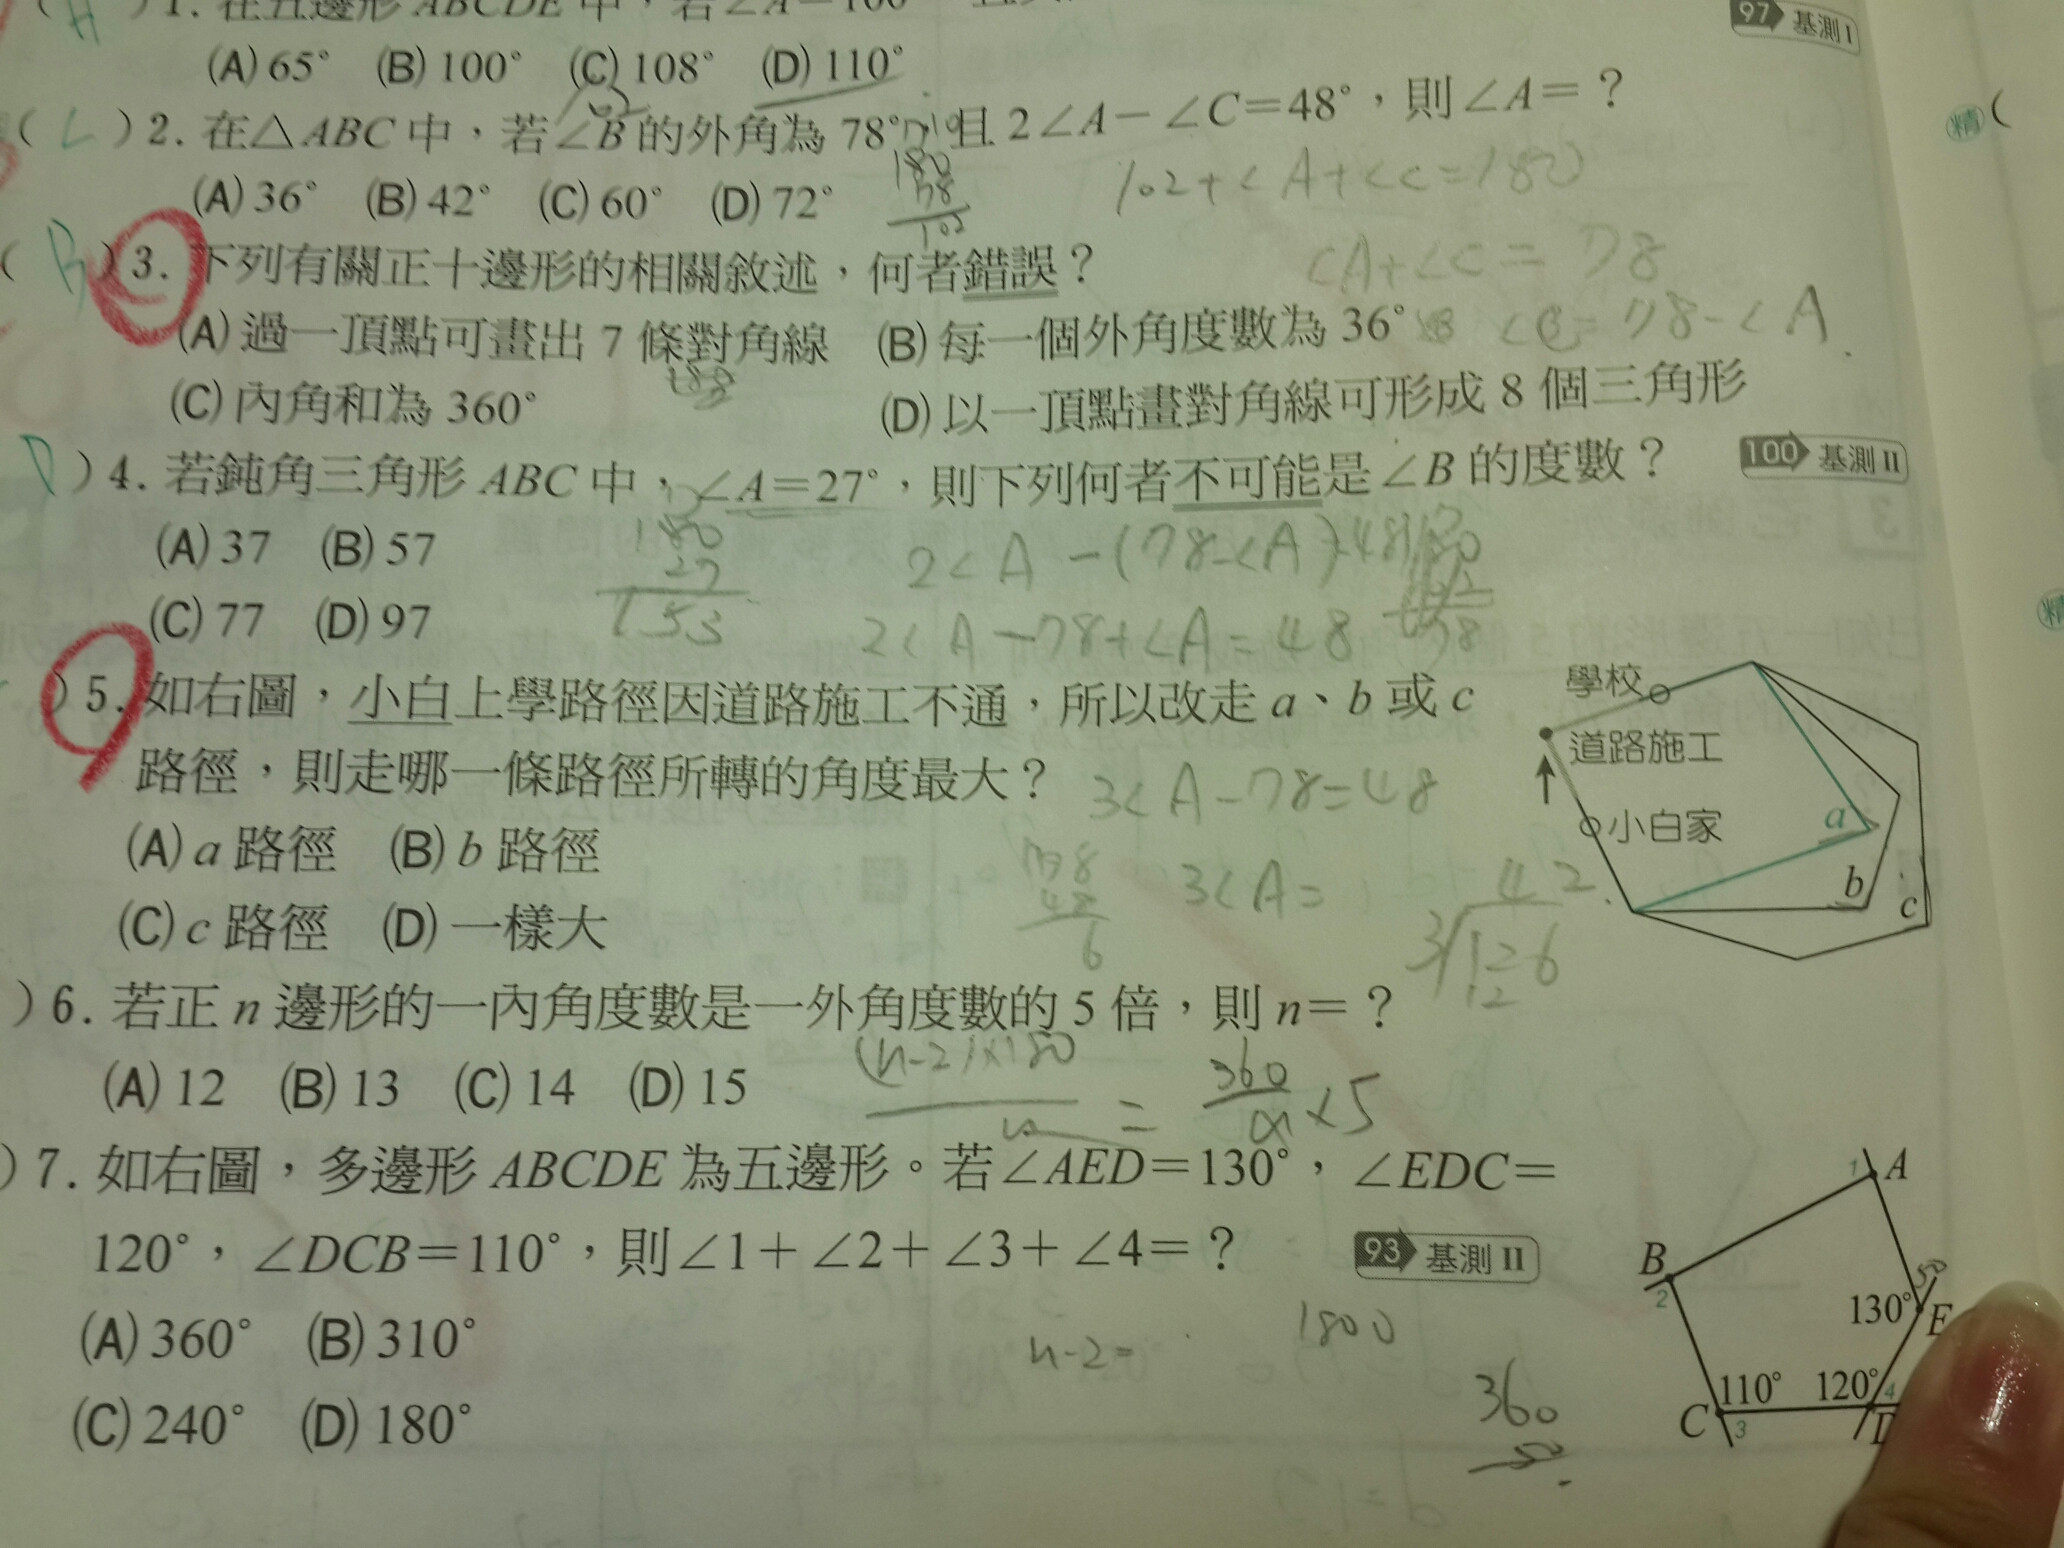 1. 在五邊形 ABCDE 中，若∠A=100°
97 基測 I
(A) 65° (B) 100° (C) 108° (D) 110°
( ) 2. 在△ABC 中，若∠B 的外角為 78°，且 2∠A－∠C=48°，則∠A=？
精 (
102+∠A+∠C=180
180
78
102
(A) 36° (B) 42° (C) 60° (D) 72°
( B ) 3. 下列有關正十邊形的相關敘述，何者錯誤？
∠A+∠C = 78
(A) 過一頂點可畫出 7 條對角線 (B) 每一個外角度數為 36°
= 78-∠A
(C) 內角和為 360° (D) 以一頂點畫對角線可形成 8 個三角形
D ) 4. 若鈍角三角形 ABC 中，∠A=27°，則下列何者不可能是∠B 的度數？
100 基測 II
(A) 37 (B) 57
180
27
153
2∠A -(78-∠A)
(C) 77 (D) 97
2∠A -78+∠A = 48
) 5. 如右圖，小白上學路徑因道路施工不通，所以改走 a、b 或 c
路徑，則走哪一條路徑所轉的角度最大？
3∠A-78=48
學校
道路施工
小白家
a
b
c
(A) a 路徑 (B) b 路徑
3∠A=
42
3 126
12
6
(C) c 路徑 (D) 一樣大
) 6. 若正 n 邊形的一內角度數是一外角度數的 5 倍，則 n=？
(n-2)×180
= 360 ×5
(A) 12 (B) 13 (C) 14 (D) 15
) 7. 如右圖，多邊形 ABCDE 為五邊形。若∠AED=130°，∠EDC=
120°，∠DCB=110°，則∠1+∠2+∠3+∠4=？
93 基測 II
(A) 360° (B) 310°
n-2=
1800
(C) 240° (D) 180°
360
50
1 A
B
2
50
130° E
110° 120° 4
C 3 D